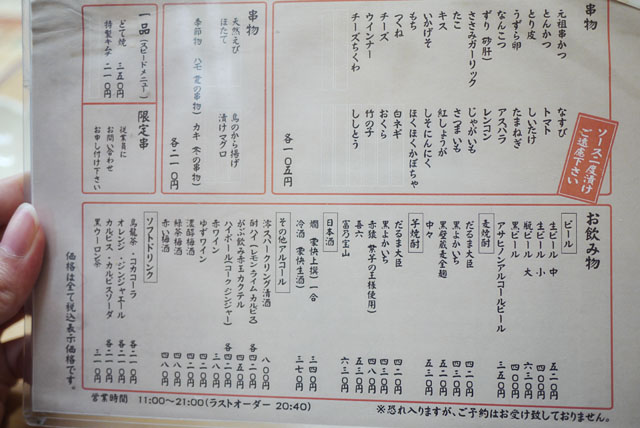 串物
元祖串かつ
とんかつ
とり皮
うずら卵
なんこつ
ずり(砂肝)
ささみガーリック
たこ
キス
いかげそ
もち
つくね
ウインナー
チーズ
チーズちくわ
なすび
トマト
しいたけ
たまねぎ
アスパラ
レンコン
じゃがいも
さつまいも
紅しょうが
しそにんにく
ほくほくかぼちゃ
白ネギ
おくら
竹の子
ししとう
各一〇五円
ソース二度漬け
ご遠慮下さい
串物
天然えび
ほたて
鳥のから揚げ
漬けマグロ
季節物 ハモ(夏の串物) カキ(冬の串物)
各二一〇円
一品(スピードメニュー)
どて焼 三五〇円
特製キムチ 二一〇円
限定串
従業員に
お問い合わせ
お申し付け下さい
お飲み物
ビール
生ビール 中 五二〇円
生ビール 小 四〇〇円
瓶ビール 大 六三〇円
黒ビール 四〇〇円
アサヒノンアルコールビール 三五〇円
麦焼酎
だるま大臣 四二〇円
黒よかいち 四〇〇円
黒壁蔵麦全麹 四二〇円
中々 五三〇円
芋焼酎
だるま大臣 四二〇円
黒よかいち 四〇〇円
赤猿(紫芋の王様使用) 四八〇円
喜六 五三〇円
富乃宝山 六三〇円
日本酒
燗 (豪快上撰) 一合 三四〇円
冷酒 (豪快生酒) 三七〇円
その他アルコール
澪スパークリング清酒 八〇〇円
酎ハイ(レモン・ライム・カルピス) 各四二〇円
がぶ飲み赤玉カクテル 四五〇円
ハイボール(コーク・ジンジャー) 各四二〇円
赤ワイン 三八〇円
ゆずワイン 四二〇円
濃醇梅酒 四二〇円
緑茶梅酒 四八〇円
赤い梅酒 四八〇円
ソフトドリンク
烏龍茶・コカコーラ 各二一〇円
オレンジ・ジンジャエール 各二一〇円
カルピス・カルピスソーダ 各二一〇円
黒ウーロン茶 三一〇円
価格は全て税込表示価格です。
営業時間 11:00〜21:00(ラストオーダー 20:40)
※恐れ入りますが、ご予約はお受け致しておりません。